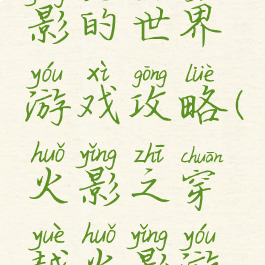 影的世界
yóu xì gōng lüè
游戏攻略(
huǒ yǐng zhī chuān
火影之穿
yuè huǒ yǐng yóu
越火影游